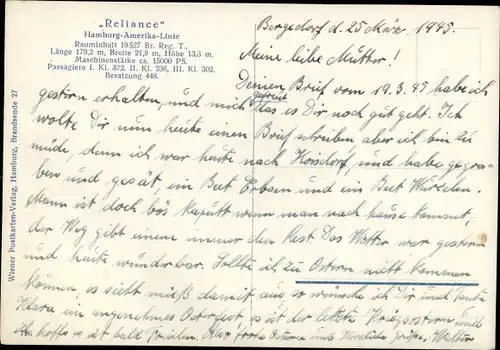 „Reliance“
Hamburg-Amerika-Linie
Rauminhalt 19527 Br. Reg. T.,
Länge 179,2 m, Breite 21,9 m, Höhe 13,3 m,
Maschinenstärke ca. 15000 PS.
Passagiere I. Kl. 372. II. Kl. 236, III. Kl. 302,
Besatzung 448.
Wiener Postkarten-Verlag, Hamburg, Brandsende 27
Bergedorf d. 25 März. 1945.
Meine liebe Mutter!
Deinen Brief vom 19.3.45 habe ich
gestern erhalten, und mich gefreut das es Dir noch gut geht. Ich
wolte Dir nun heute einen Brief schreiben aber ich bin zu
müde, denn ich war heute nach und habe gegra-
ben und gesät, ein Beet Erbsen und ein Beet Wurzeln.
Mann ist doch bös kaputt wenn man nach hause kommt,
der Weg gibt einem immer den Rest. Das Wetter war gestern
und heute wunderbar. Sollte ich zu Ostern nicht kommen
können es sieht mieß damit aus so wünsche ich Dir und Tante
Klara ein angenehmes Osterfest es ist der letzte Kriegsostern und
ich hoffe es ist bald Frieden. Also frohe Ostern und Herzliche Grüße,